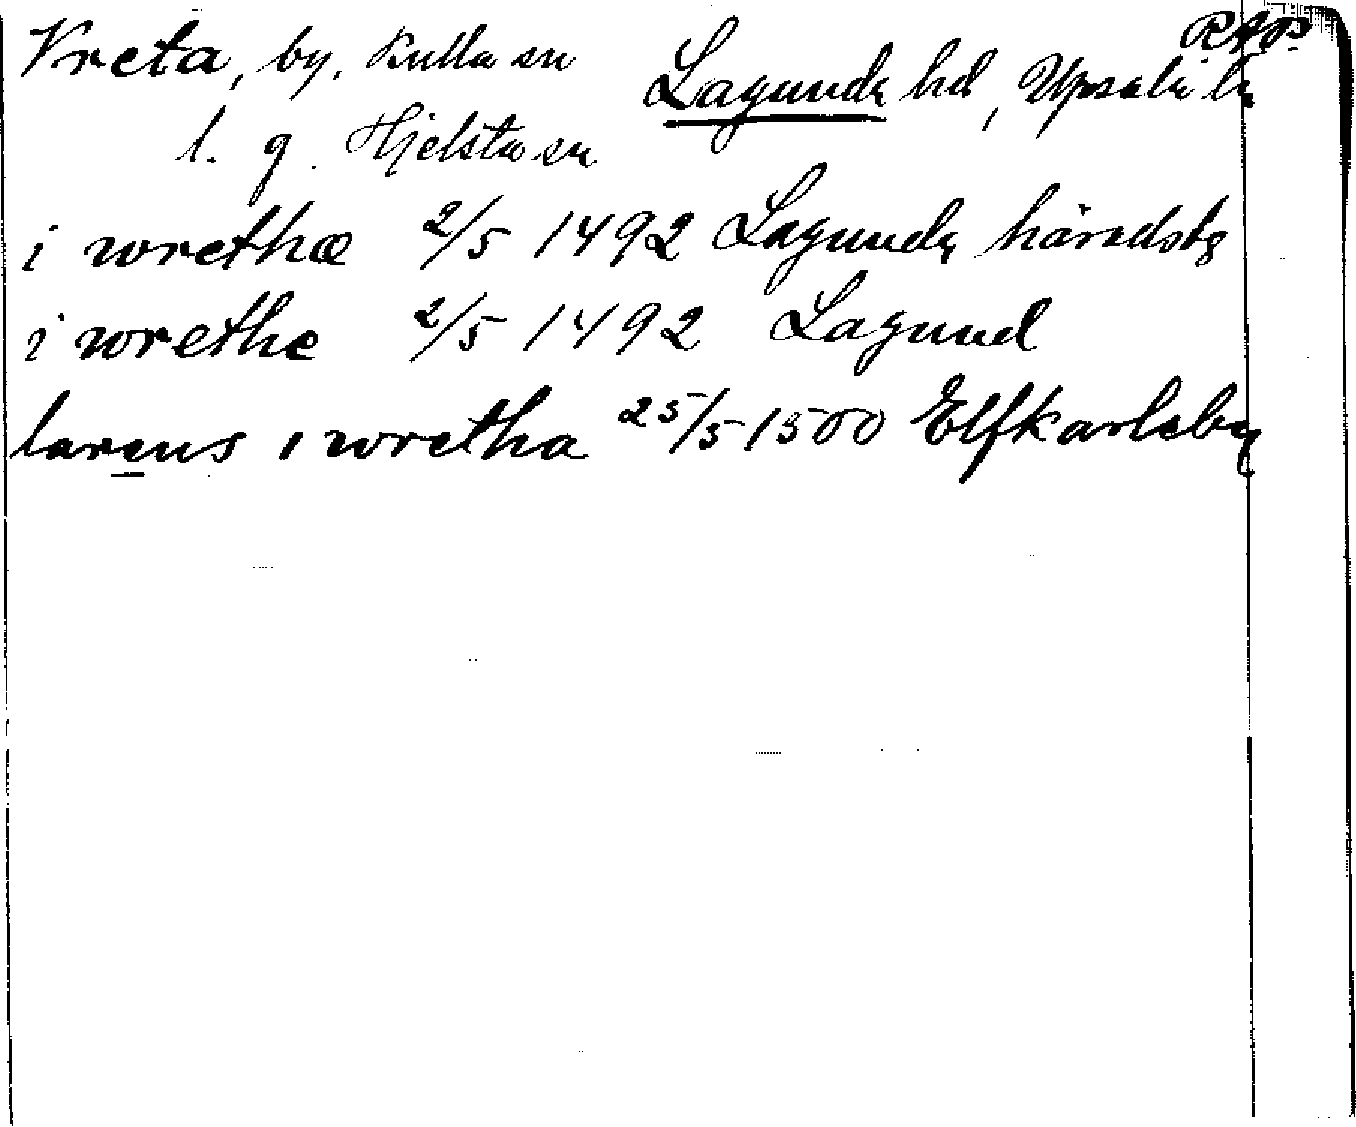 RAP.
Vreta, by, Kulla sn Lagunda hd, Upsala län
l. g. Hjelsta sn
i wrethæ 2/5 1492 Lagunda häradstg
i wrethe 2/5 1492 Lagund
larens i wretha 25/5 1500 Elfkarleby